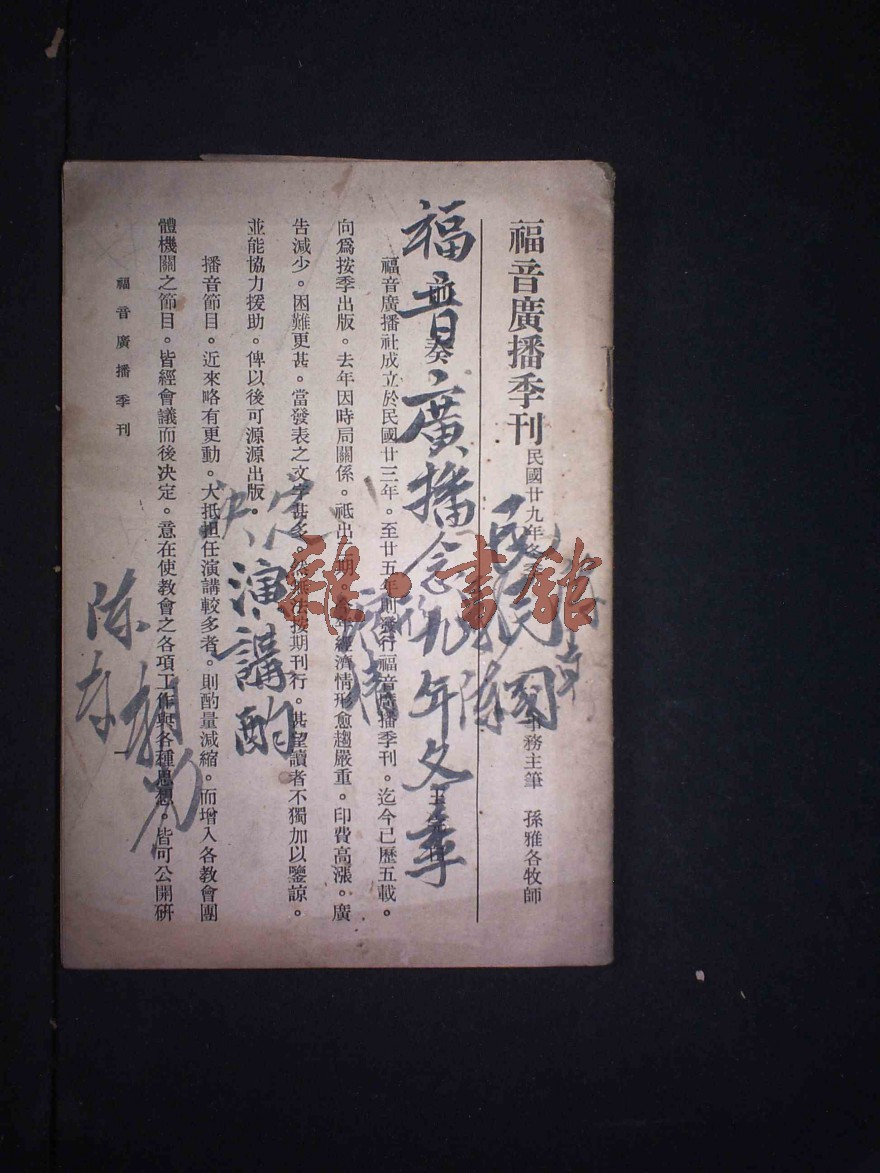 福音廣播季刊 民國廿九年冬季 事務主筆 孫雅各牧師
前奏 王完白
福音廣播社成立於民國廿三年。至廿五年則發行福音廣播季刊。迄今已歷五載。
向爲按季出版。去年因時局關係。祗出一期。今年經濟情形愈趨嚴重。印費高漲。廣
告減少。困難更甚。當發表之文字甚多。無法按期刊行。甚望讀者不獨加以鑒諒。
並能協力援助。俾以後可源源出版。
播音節目。近來略有更動。大抵担任演講較多者。則酌量減縮。而增入各教會團
體機關之節目。皆經會議而後决定。意在使教會之各項工作與各種思想。皆可公開研
福音廣播季刊
一
民國
福音廣播念九年冬季
决定
演講酌
陈
雜·書館